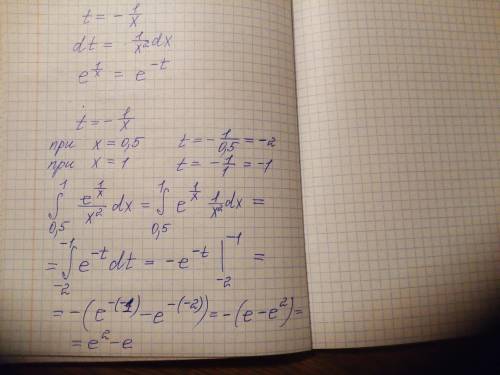 t = - 1/x
dt = 1/x² dx
e^(1/x) = e^(-t)
t = - 1/x
при x = 0,5 t = - 1/0,5 = -2
при x = 1 t = - 1/1 = -1
∫_{0,5}^{1} e^(1/x)/x² dx = ∫_{0,5}^{1} e^(1/x) 1/x² dx =
= ∫_{-2}^{-1} e^(-t) dt = -e^(-t) |_{-2}^{-1} =
= -(e^(-(-1)) - e^(-(-2))) = -(e - e²) =
= e² - e